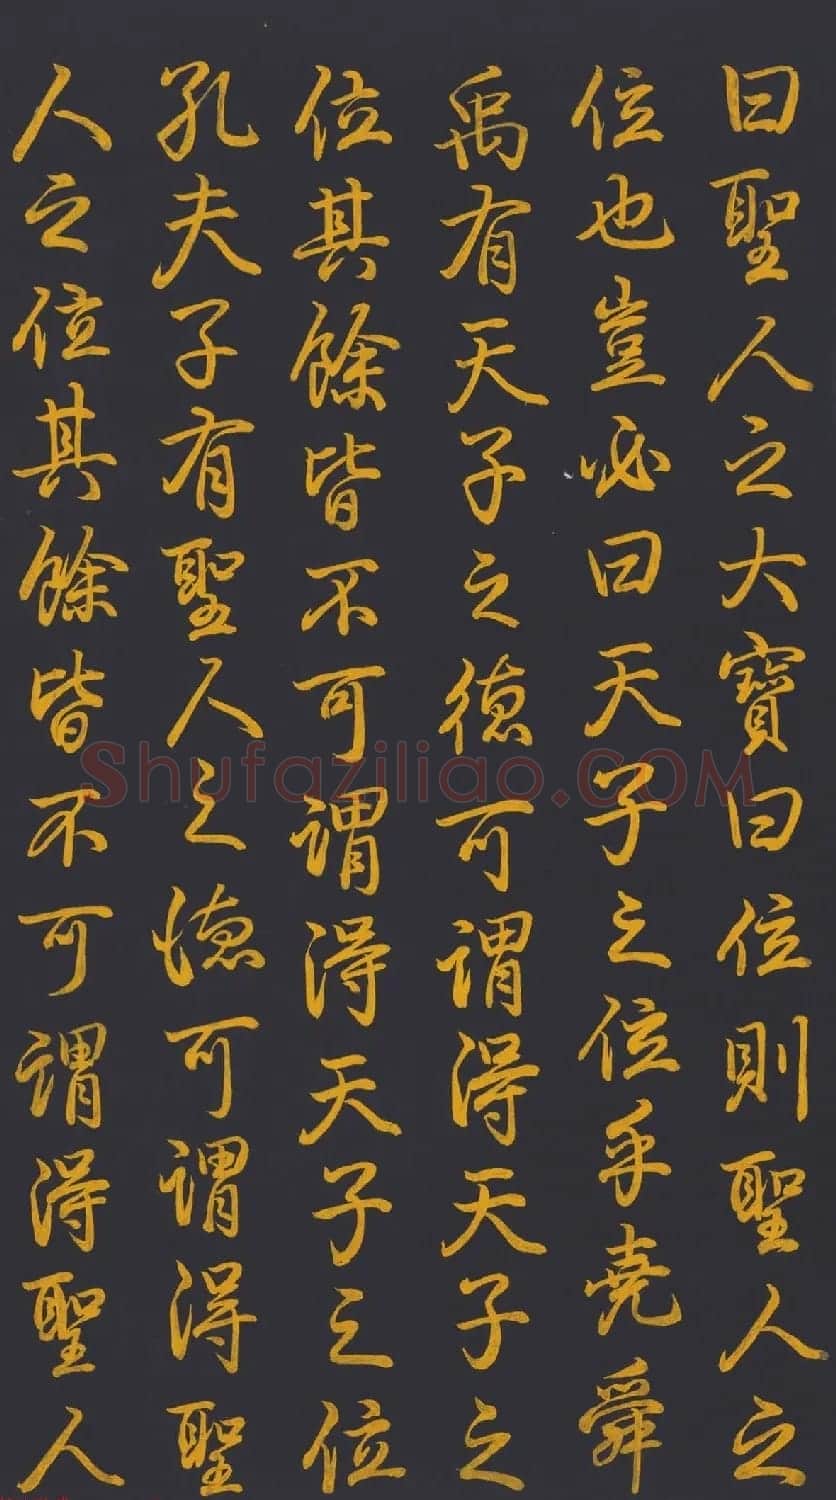 曰聖人之大寶曰位則聖人之
位也豈必曰天子之位乎堯舜
禹有天子之德可謂得天子之
位其餘皆不可謂得天子之位
孔夫子有聖人之德可謂得聖
人之位其餘皆不可謂得聖人
Shufaziliao.COM